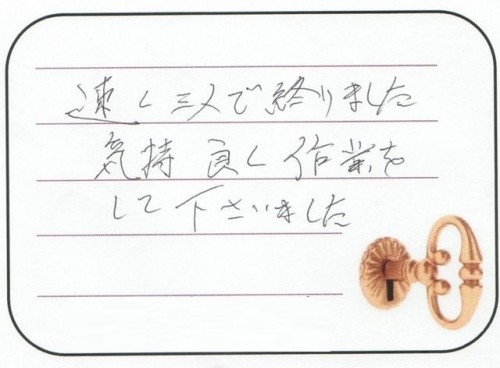 速く三人で終りました
気持良く作業を
して下さいました